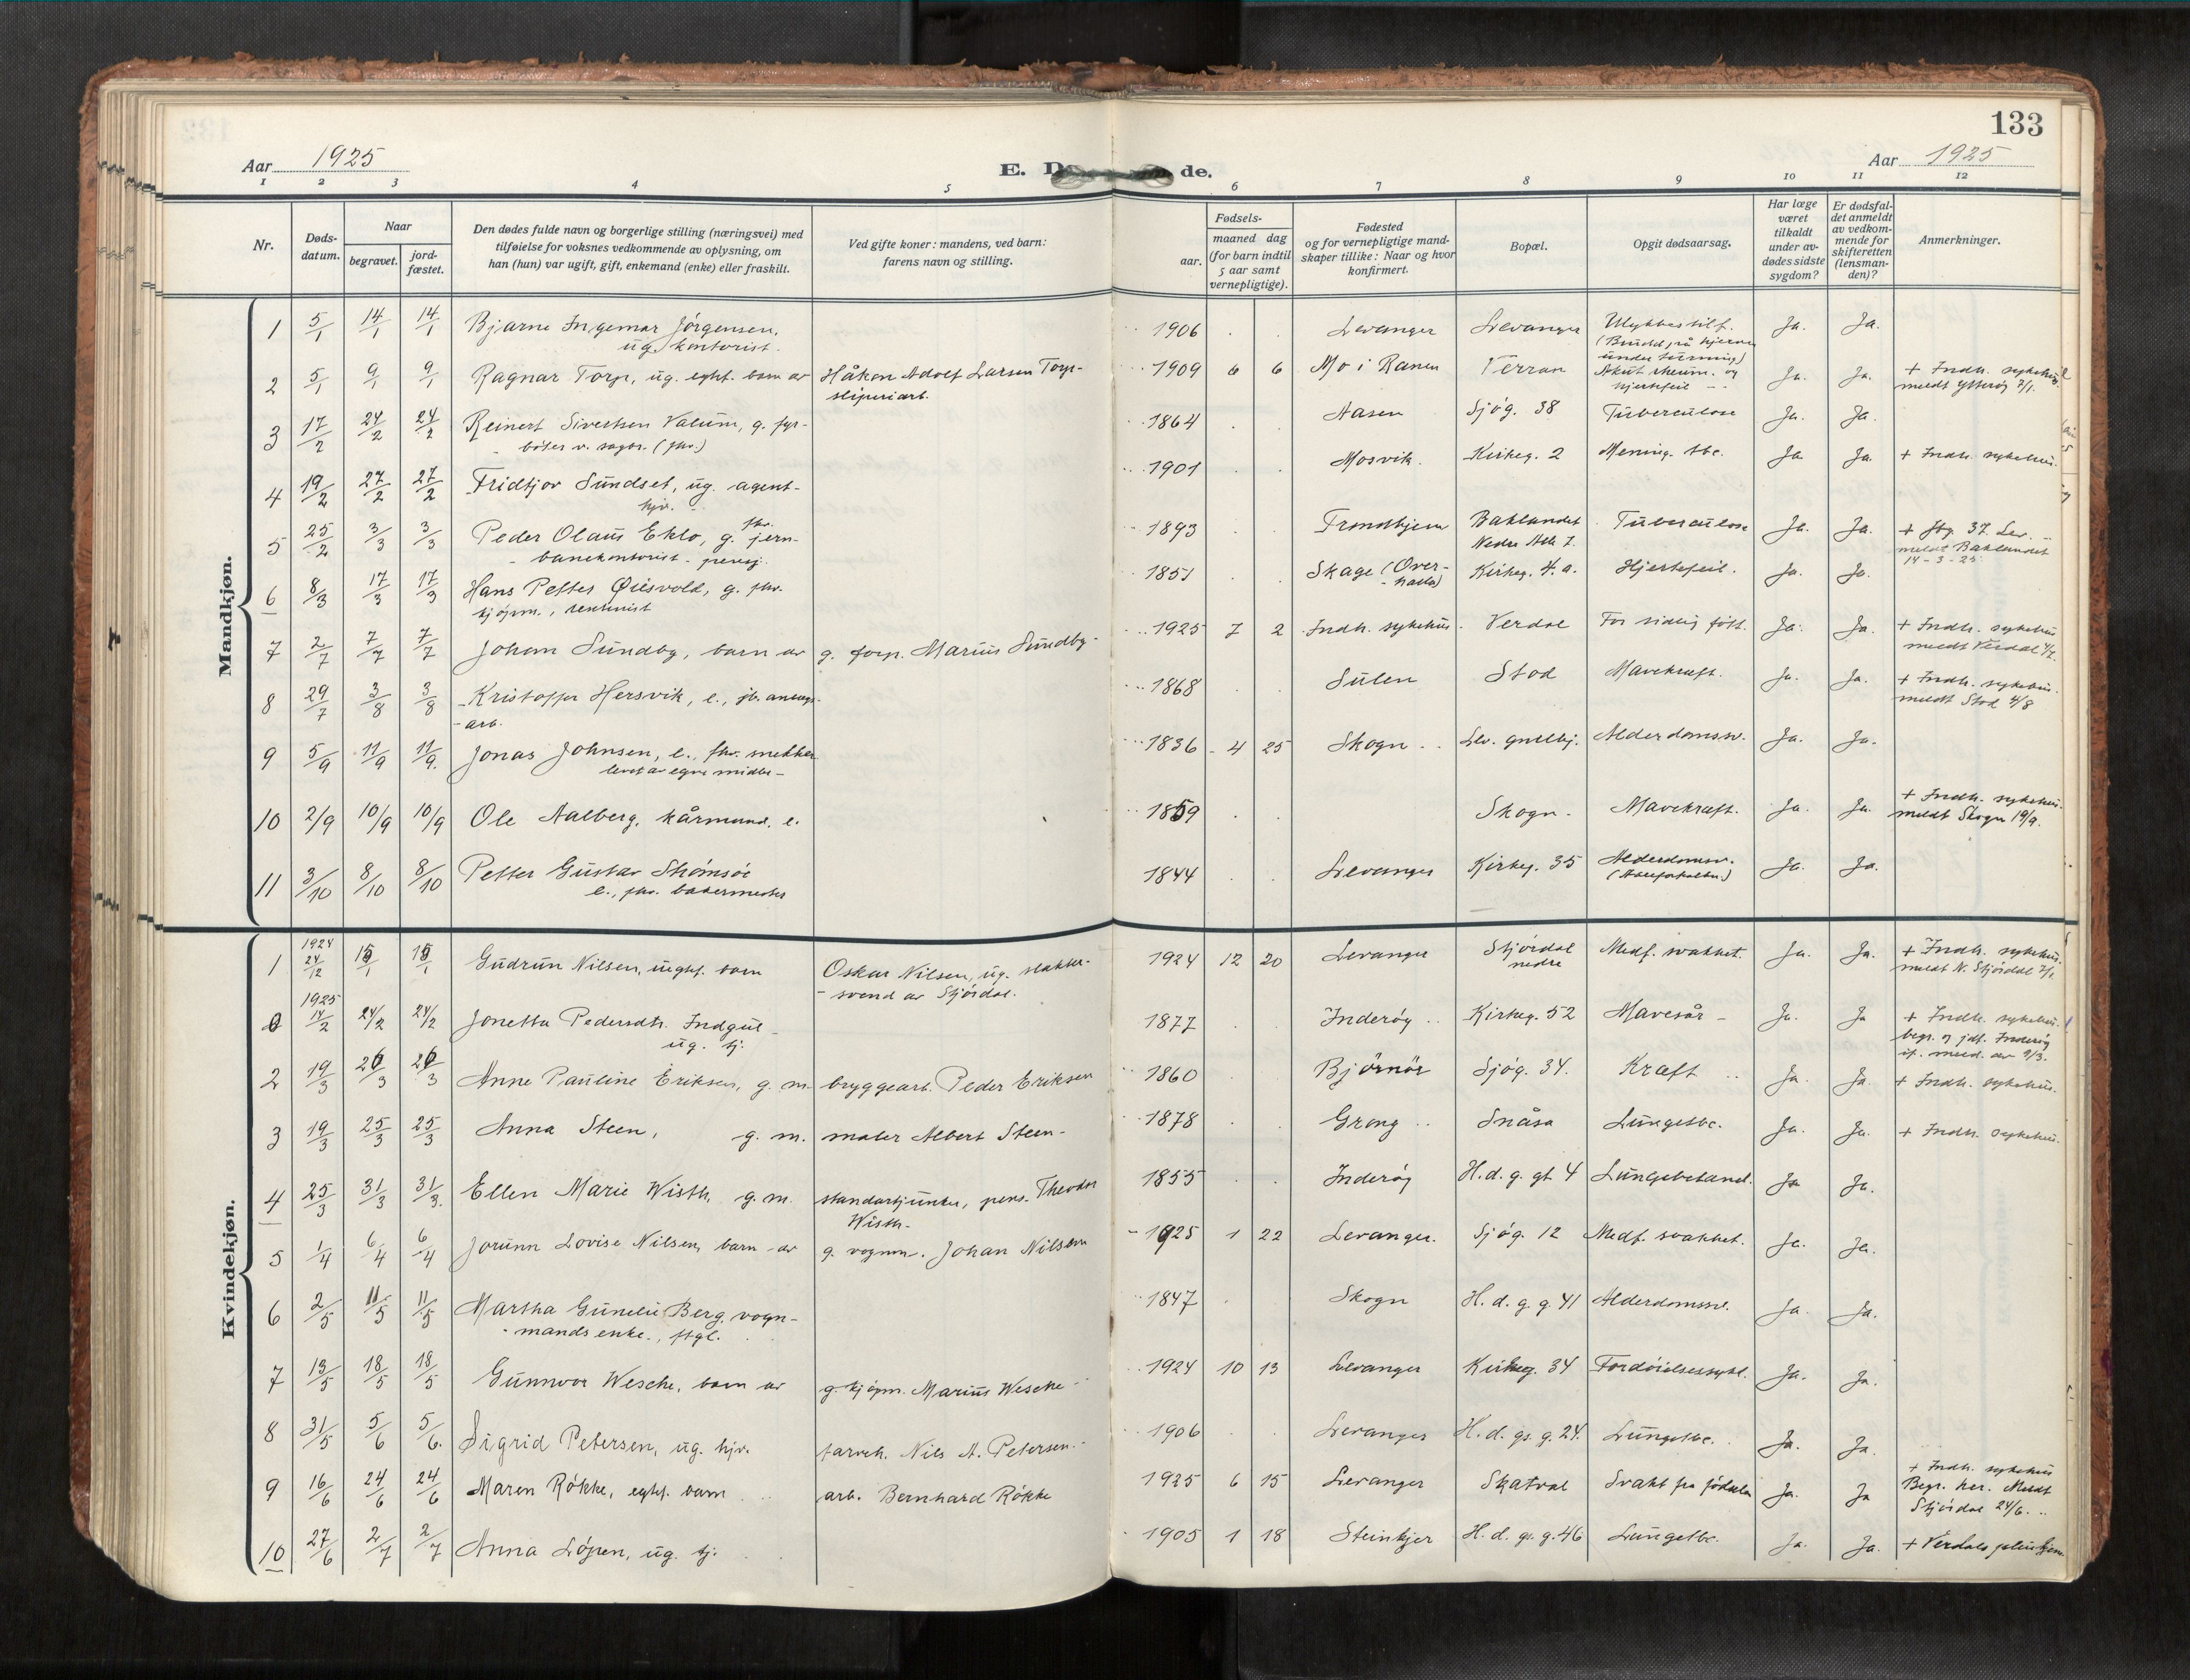 133
Aar 1925
E. D de.
Aar 1925
1 2 3 4 5 6 7 8 9 10 11 12
Nr.
Døds-
datum.
Naar
begravet.
jord-
fæstet.
Den dødes fulde navn og borgerlige stilling (næringsvei) med
tilføielse for voksnes vedkommende av oplysning, om
han (hun) var ugift, gift, enkemand (enke) eller fraskilt.
Ved gifte koner: mandens, ved barn:
farens navn og stilling.
Fødsels-
aar.
maaned dag
(for barn indtil
5 aar samt
vernepligtige).
Fødested
og for vernepligtige mand-
skaper tillike: Naar og hvor
konfirmert.
Bopæl.
Opgit dødsaarsag.
Har læge
været
tilkaldt
under av-
dødes sidste
sygdom?
Er dødsfal-
det anmeldt
av vedkom-
mende for
skifteretten
(lensman-
den)?
Anmerkninger.
Mandkjøn.
1 5/1 14/1 14/1 Bjarne Ingemar Jörgensen, 1906 Levanger Levanger Ulykkestilf. Ja. Ja.
ug. kontorist.
(Brudd på hjernen
under turning)
2 5/1 9/1 9/1 Ragnar Torp, ug. eght. barn av Håkon Adolf Larsen Torp- 1909 6 6 Mo i Ranen Verran Akut rheum. og Ja. Ja. + Indh. sykehus
sliperiarb. hjertefeil meldt Ytterøy 7/1.
3 17/2 24/2 24/2 Reinert Sivertsen Valum, g. fyr- 1864 Aasen Sjóg. 38 Tuberculose Ja. Ja.
bøter v. sagbr. (fhv.)
4 19/2 27/2 27/2 Fridtjov Sundset, ug. agent- 1901 Mosvik. Kirkeg. 2 Mening. tbc. Ja Ja. + Indh. sykehus.
5 25/2 3/3 3/3 Peder Olaus Eklo, g. fhv. jern- 1893 Trondhjem Baklandet Tuberculose Ja. Ja. + 37. Lev.
banekontorist - pensj. Nedre Alle 7. meldt Baklandet
14-3-25
6 8/3 17/3 17/3 Hans Petter Øiesvold, g. fhv. 1851 Skage (Over- Kirkeg. 4.a. Hjertefeil. Ja. Ja.
kjøpm., rentenist -halla)
7 2/7 7/7 7/7 Johan Sundby, barn av g. forp. Marius Sundby- 1925 7 2 Indh. sykehus. Verdal For tidlig født. Ja. Ja. + Indh. sykehus
meldt Verdal
8 29/7 3/8 3/8 Kristoffer Hersvik, e., jb. anlegs- 1868 Sulen Stod Mavekræft. Ja. Ja. + Indh. sykehus.
-arb. meldt Stod 4/8
9 5/9 11/9 11/9. Jonas Johnsen, e., fhv. snekker 1836 4 25 Skogn Lev. gmlhj. Alderdomssv. Ja. Ja.
levet av egne midler-
10 2/9 10/9 10/9 Ole Aalberg, kårmand, e. 1859 Skogn. Mavekræft. Ja. Ja. + Indh. sykehus.
meldt Skogn 19/9.
11 3/10 8/10 8/10 Petter Gustav Strömsöe 1844 Levanger Kirkeg. 35 Alderdomssv. Ja. Ja.
e., fhv. bakermester (Aareforkalkn.)
Kvindekjøn.
1 1924 24/12 15/1 15/1 Gudrun Nilsen, uegtf. barn Oskar Nilsen, ug. slakter- 1924 12 20 Levanger Stjördal Medf. svakhet. Ja. Ja. + Indh. sykehus.
-svend av Stjördal. nedre meldt N. Stjördal 7/1.
1925
14/2 24/2 24/2 Jonetta Pedersdtr. Indgul- 1877 Inderöy Kirkeg. 52 Mavesår - Ja. Ja + Indh. sykehus.
ug. tj. begr. og jdf. Inderöy
if. meld. av 9/3.
2 19/3 26/3 26/3 Anne Pauline Eriksen, g. m. bryggearb. Peder Eriksen 1860 Björnör Sjóg. 34. Kræft Ja. Ja. + Indh. sykehus.
3 19/3 25/3 25/3 Anna Steen, g. m. maler Albert Steen- 1878 Grong Snåsa Lungetbc. Ja. Ja. + Indh. sykehus.
4 25/3 31/3 31/3. Ellen Marie Wisth g. m. standartjunker, pens. Theodor 1855 Inderöy H.d. g. gt 4 Lungebetænd. Ja Ja.
Wisth-
5 1/4 6/4 6/4 Jorunn Lovise Nilsen, barn av g. vognm. Johan Nilsen 1925 1 22 Levanger. Sjóg. 12 Medf. svakhet. Ja. Ja.
6 2/5 11/5 11/5 Martha Gunelie Berg, vogn- 1847 Skogn H. d. g. g. 41 Alderdomssv. Ja. Ja.
-mands enke.,
7 13/5 18/5 18/5 Gunnvor Wesche, barn av g. kjöpm. Marius Wesche 1924 10 13 Levanger Kirkeg. 34 Fordöielsessykd. Ja. Ja.
8 31/5 5/6 5/6. Sigrid Petersen, ug. hjv. farveh. Nils A. Petersen. 1906 Levanger H. d. gs. g. 24. Lungetbc. Ja. Ja.
9 16/6 24/6 24/6 Maren Rökke, egtf. barn arb. Bernhard Rökke 1925 6 15 Levanger Skatval Svakt fra födselen Ja. Ja + Indh. sykehus
Begr. her. Meldt
Stjördal 24/6.
10 27/6 2/7 2/7 Anna Löpen, ug. tj. 1905 1 18 Steinkjer H. d. gs. g. 46 Lungetbc. Ja. Ja. + Verdals pleiehjem.